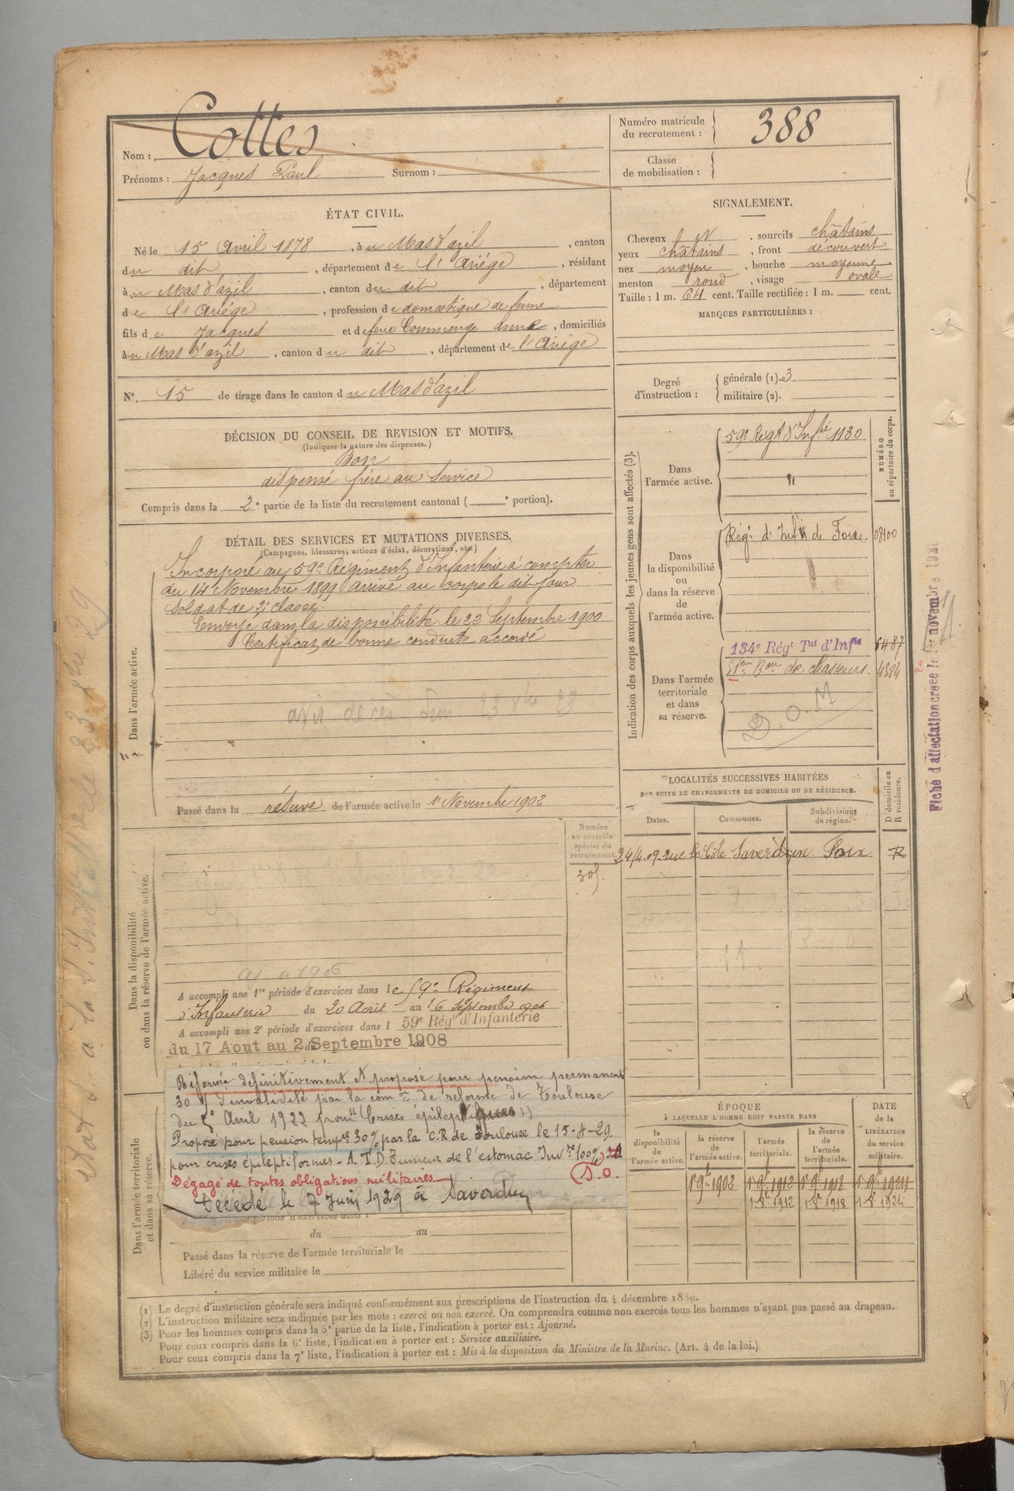 Nom : Cottes
Prénoms : Jacques Paul Surnom :
Numéro matricule du recrutement : 388
Classe de mobilisation :
ÉTAT CIVIL.
Né le 15 Avril 1878, à u Mas d'azil, canton
du dit, département de l'Ariége, résidant
à u Mas d'azil, canton du dit, département
de l'Ariége, profession de domestique de ferme
fils de Jacques et de feue Commenge, domiciliés
à u Mas d'azil, canton du dit, département de l'Ariége
N°. 15 de tirage dans le canton du Mas d'azil
SIGNALEMENT.
Cheveux, sourcils châtains
yeux châtains, front découvert
nez moyen, bouche moyenne
menton rond, visage ovale
Taille : 1 m. 64 cent. Taille rectifiée : 1 m. cent.
MARQUES PARTICULIÈRES :
Degré d'instruction :
générale (1). 3
militaire (2).
DÉCISION DU CONSEIL DE REVISION ET MOTIFS.
(Indiquer la nature des dispenses.)
Bon
dispensé frère au Service
Compris dans la 2e partie de la liste du recrutement cantonal ( e portion).
DÉTAIL DES SERVICES ET MUTATIONS DIVERSES.
(Campagnes, blessures, actions d'éclat, décorations, etc.)
Dans l'armée active.
Incorporé au 59e Régiment d'Infanterie à compter
du 14 Novembre 1899 arrivé au corps le dit jour
Soldat de 2e classe.
Envoyé dans la disponibilité le 22 Septembre 1900
Certificat de bonne conduite accordé
Passé dans la réserve de l'armée active le 1er Novembre 1902
Indication des corps auxquels les jeunes gens sont affectés (3).
NUMÉRO au répertoire du corps.
Dans l'armée active.
59e Régt d'Infie 1130
Dans la disponibilité ou dans la réserve de l'armée active.
Régt d'Infie de Foix 08100
Dans l'armée territoriale et dans sa réserve.
134e Régt Tal d'Infie 6487
Bon de chasseurs. 4524
D.O.M
Fiche d'affectation créée le 1er novembre 1921
LOCALITÉS SUCCESSIVES HABITÉES
PAR SUITE DE CHANGEMENTS DE DOMICILE OU DE RÉSIDENCE.
Dates. Communes. Subdivisions de région. D domicile ou R résidence.
24/4.09 Saverdun Foix R
Numéro au contrôle spécial du recrutement.
305
Dans la disponibilité ou dans la réserve de l'armée active.
A accompli une 1re période d'exercices dans le 59e Régiment
d'Infanterie du 20 Août au 16 Septembre 1906
A accompli une 2e période d'exercices dans l 59e Régt d'Infanterie
du 17 Aout au 2 Septembre 1908
Réformé définitivement et proposé pour pension permanente
30 % d'invalidité par la comon de réforme de Toulouse
du 5 Avril 1922 pour "Crises épileptiques"
Proposé pour pension tempre 30% par la C.R de Toulouse le 15-4-29
pour crises épileptiformes - A.T.D. Tumeur de l'estomac Invté 100%
Dégagé de toutes obligations militaires
Décédé le 7 Juin 1929 à Saverdun
Dans l'armée territoriale et dans sa réserve.
du au
Passé dans la réserve de l'armée territoriale le
Libéré du service militaire le
ÉPOQUE
À LAQUELLE L'HOMME DOIT PASSER DANS
la disponibilité de l'armée active. la réserve de l'armée active. l'armée territoriale. la réserve de l'armée territoriale.
DATE de la LIBÉRATION du service militaire.
1er 9bre 1902 1er 9bre 1912 1er 9bre 1918 1er 9bre 1924
1912 1918 1924
(1) Le degré d'instruction générale sera indiqué conformément aux prescriptions de l'instruction du 4 décembre 1889.
(2) L'instruction militaire sera indiquée par les mots : exercé ou non exercé. On comprendra comme non exercés tous les hommes n'ayant pas passé au drapeau.
(3) Pour les hommes compris dans la 5e partie de la liste, l'indication à porter est : Ajourné.
Pour ceux compris dans la 6e liste, l'indication à porter est : Service auxiliaire.
Pour ceux compris dans la 7e liste, l'indication à porter est : Mis à la disposition du Ministre de la Marine. (Art. 4 de la loi.)